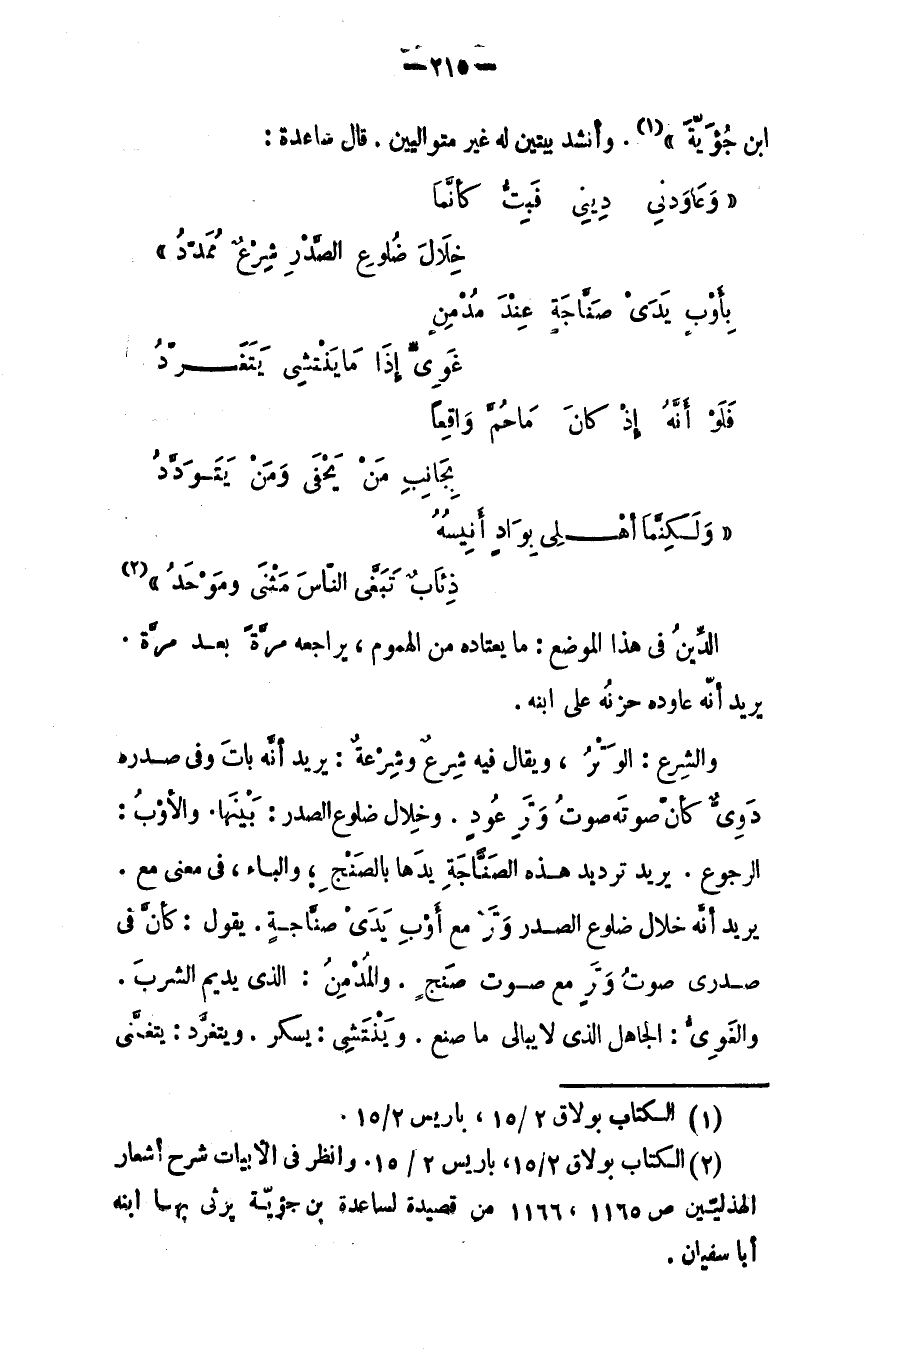 — ٢١٥ —
ابن جُؤَيَّةَ »(١) . وأنشد بيتين له غير متواليين . قال ساعدة :
« وَعَاوَدَنِي دِينِي فَبِتُّ كأنَّمَا
خِلَالَ ضُلوعِ الصَّدْرِ شِرْعٌ مُمَدَّدُ »
بِأَوْبِ يَدَىْ صَنَّاجَةٍ عِنْدَ مُدْمِنٍ
غَوِىٍّ إِذَا مَا يَنْتشِى يَتَغَــرَّدُ
فَلَوْ أَنَّهُ إِذْ كانَ مَاحُمَّ وَاقِعاً
بِجَانِبِ مَنْ يَحْفَى وَمَنْ يَتَـوَدَّدُ
« وَلَـكِنَّمَا أَهْــلِى بِوَادٍ أَنِيسُهُ
ذِئَابٌ تَبَغَّى النَّاسَ مَثْنَى ومَوْحَدُ »(٢)
الدِّينُ فى هذا الموضع : ما يعتاده من الهموم ، يراجعه مرَّةً بعـد مرَّة .
يريد أنّه عاوده حزنُه على ابنه .
والشِرع : الوَتَرُ ، ويقال فيه شِرعٌ وشِرْعةٌ : يريد أنَّه باتَ وفى صـدره
دَوِىٌّ كأنّ صوتَه صوتُ وَتَرِ عُودٍ . وخلال ضلوع الصدر : بَيْنَها . والأوْبُ :
الرجوع . يريد ترديد هـذه الصَنَّاجَةِ يدَها بالصَنْجِ ؛ والبـاء ، فى معنى مع .
يريد أنَّه خلال ضلوع الصـدر وَتَرٌ مع أَوْبِ يَدَىْ صنّاجـةٍ . يقول : كأنَّ فى
صـدرى صوتُ وَتَرٍ مع صـوت صَنجٍ . والمُدْمِنُ : الذى يديم الشربَ .
والغَوِىُّ : الجاهل الذى لا يبالى ما صنع . ويَنْتَشِى : يسكر . ويتغرَّد : يتغنَّى
(١) الـكتاب بولاق ٢ /١٥ ، باريس ١٥/٢ .
(٢) الـكتاب بولاق ١٥/٢، باريس ٢ / ١٥. وانظر فى الأبيات شرح أشعار
الهذليّين ص ١١٦٥ ، ١١٦٦ من قصيدة لساعدة بن جؤيّـة يرثى بهـا ابنه
أبا سفيان .